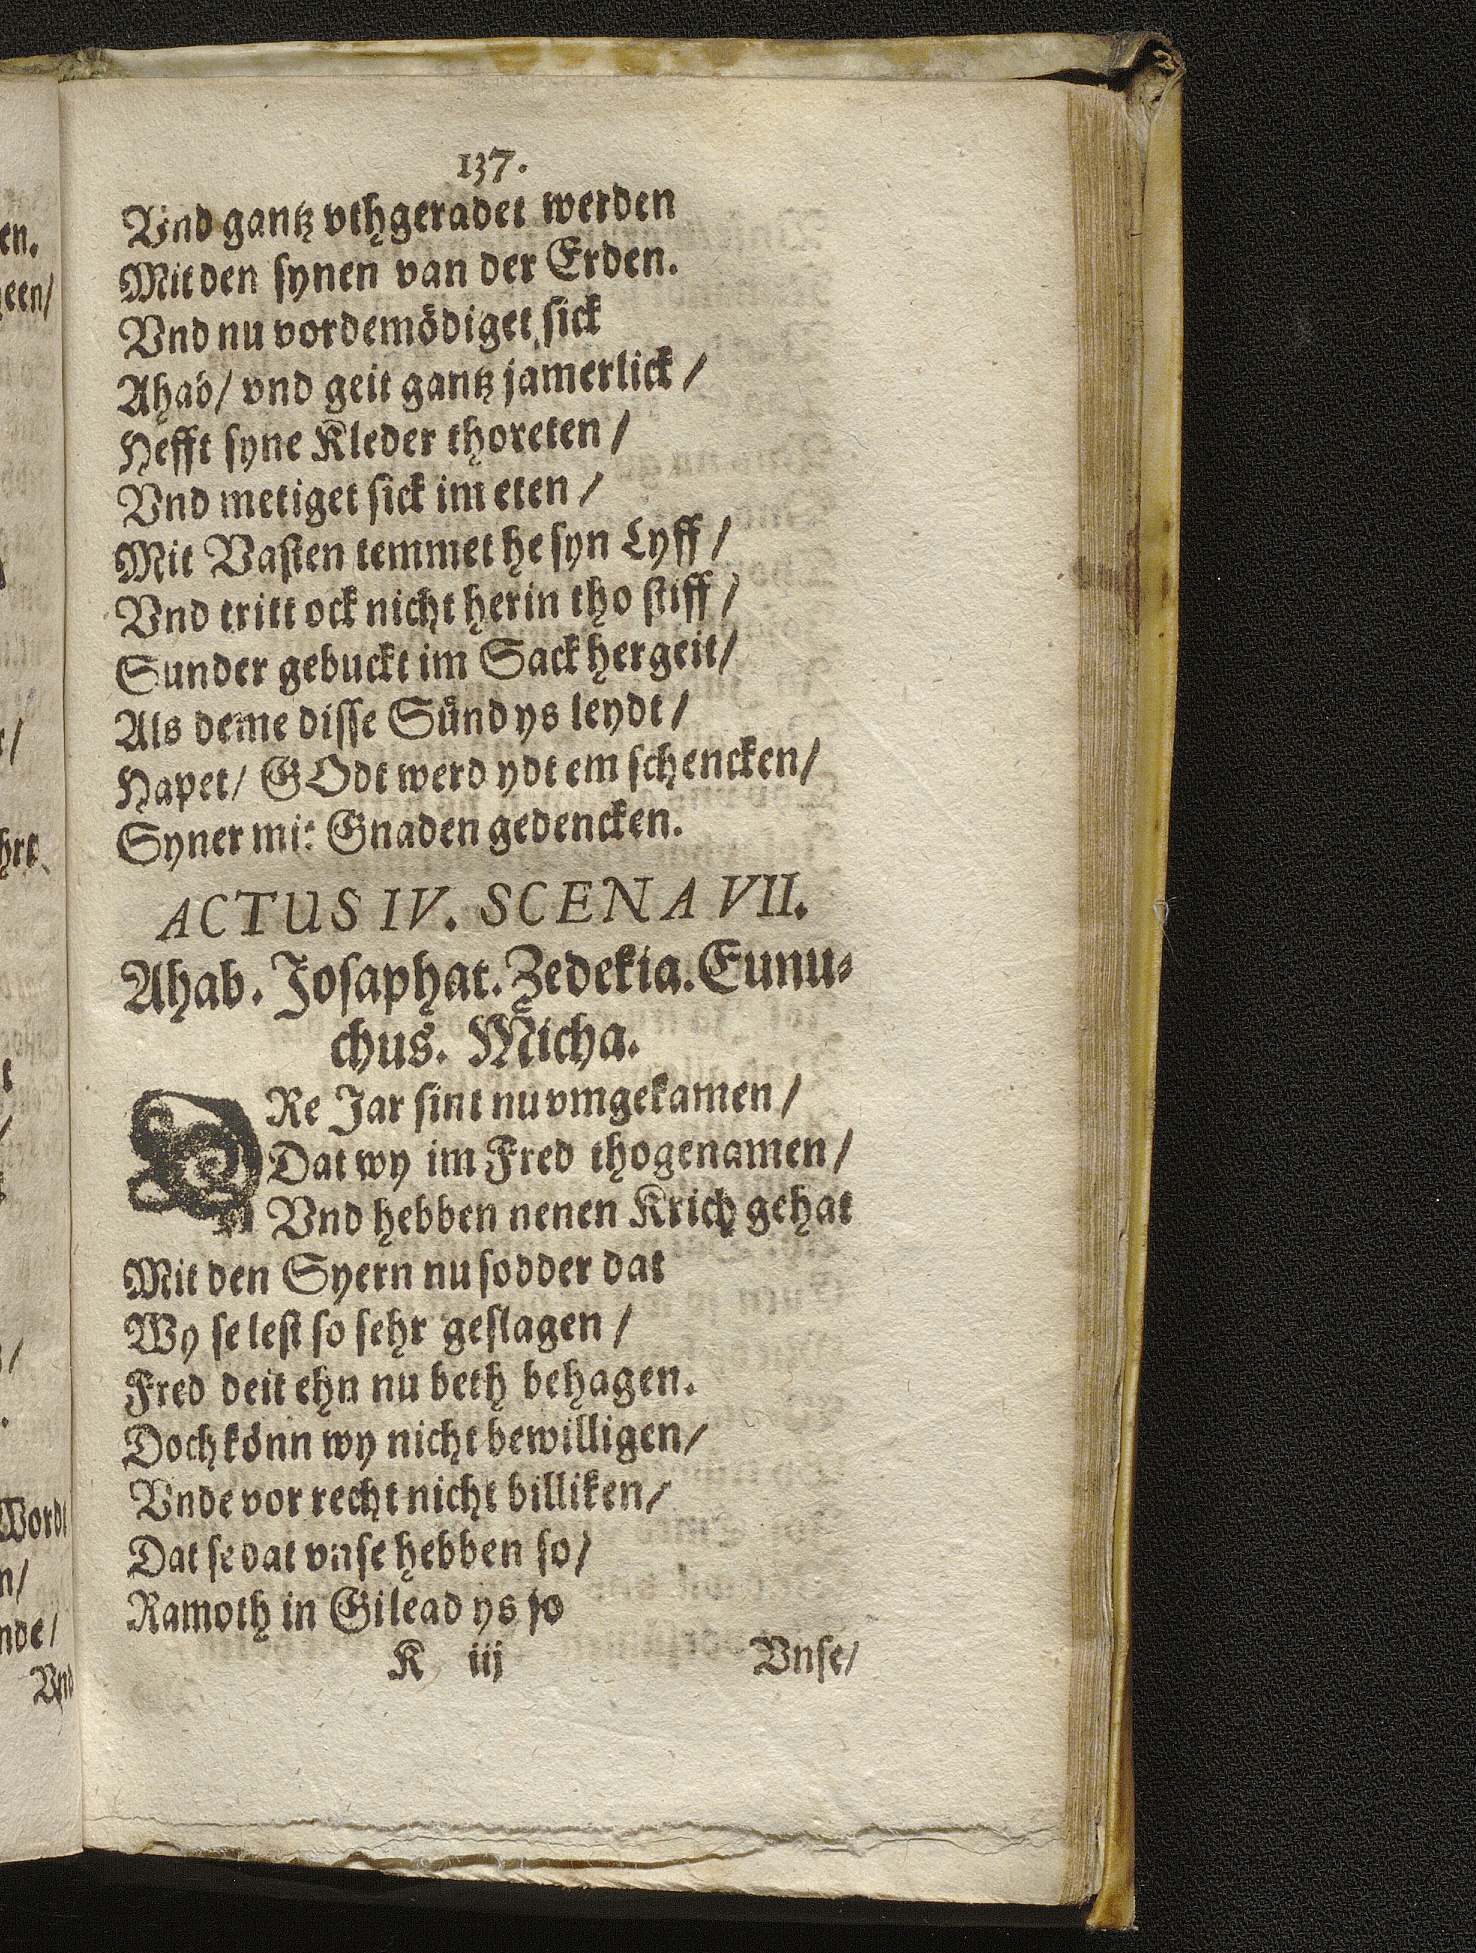 137.
Vnd gantz vthgeradet werden
Mit den synen van der Erden.
Vnd nu vordemödiget sick
Ahab/ vnd geit gantz jamerlick /
Hefft syne Kleder thoreten /
Vnd metiget sick im eten /
Mit Vasten temmet he syn Lyff /
Vnd tritt ock nicht herin tho stiff /
Sunder gebuckt im Sack hergeit/
Als deme disse Sünd ys leydt /
Hapet/ GOdt werd ydt em schencken/
Syner mit Gnaden gedencken.
ACTUS IV. SCENA VII.
Ahab. Josaphat. Zedekia. Eunu-
chus. Micha.
DRe Jar sint nu vmgekamen /
Dat wy im Fred thogenamen /
Vnd hebben nenen Krich gehat
Mit den Syern nu sodder dat
Wy se lest so sehr geslagen /
Fred deit ehn nu beth behagen.
Doch könn wy nicht bewilligen/
Vnde vor recht nicht billiken/
Dat se dat vnse hebben so/
Ramoth in Gilead ys jo
K iij Vnse/